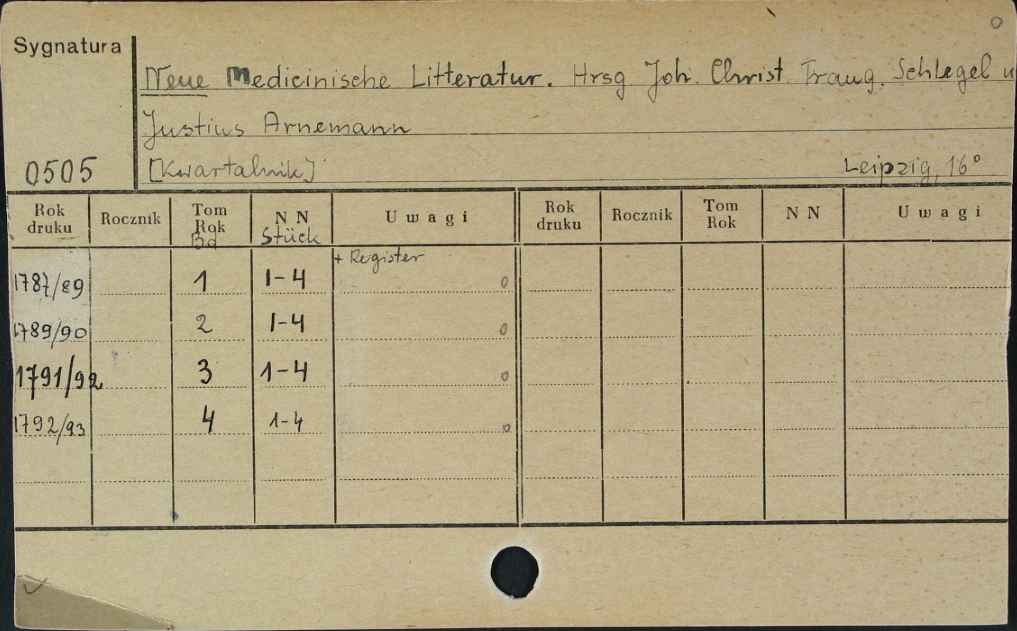 o
Sygnatura
Neue Medicinische Litteratur. Hrsg Joh. Christ. Traug. Schlegel u
Justius Arnemann
0505 [Kwartalnik] Leipzig, 16°
Rok druku Rocznik Tom Rok Bd NN Stück Uwagi Rok druku Rocznik Tom Rok NN Uwagi
+ Register
1787/89 1 1-4 o
1789/90 2 1-4 o
1791/92 3 1-4 o
1792/93 4 1-4 o